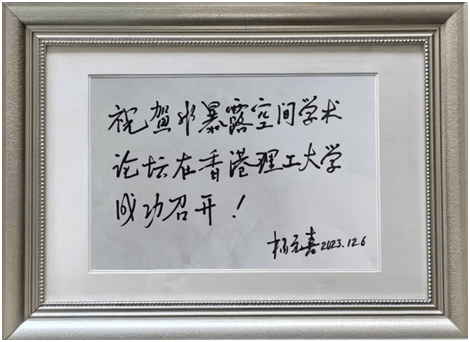 祝贺水暴露空间学术
论坛在香港理工大学
成功召开！
杨元喜 2023.12.6